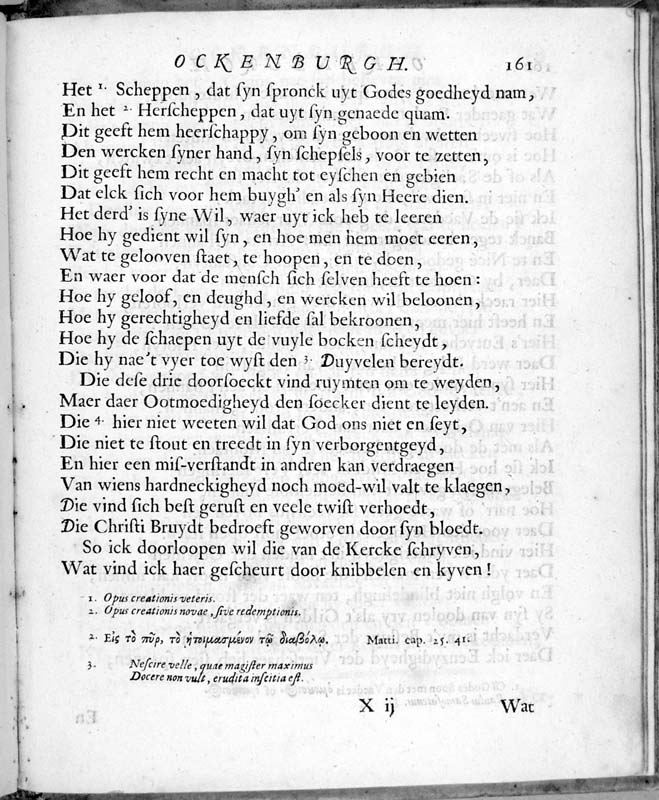 OCKENBURGH. 161
Het 1. Scheppen, dat ſyn ſpronck uyt Godes goedheyd nam,
En het 2. Herſcheppen, dat uyt ſyn genaede quam.
Dit geeft hem heerſchappy, om ſyn geboon en wetten
Den wercken ſyner hand, ſyn ſchepſels, voor te zetten,
Dit geeft hem recht en macht tot eyſchen en gebien
Dat elck ſich voor hem buygh' en als ſyn Heere dien.
Het derd' is ſyne Wil, waer uyt ick heb te leeren
Hoe hy gedient wil ſyn, en hoe men hem moet eeren,
Wat te gelooven ſtaet, te hoopen, en te doen,
En waer voor dat de menſch ſich ſelven heeft te hoen:
Hoe hy geloof, en deughd, en wercken wil beloonen,
Hoe hy gerechtigheyd en liefde ſal bekroonen,
Hoe hy de ſchaepen uyt de vuyle bocken ſcheydt,
Die hy nae't vyer toe wyſt den 3. Duyvelen bereydt.
Die deſe drie doorſoeckt vind ruymten om te weyden,
Maer daer Ootmoedigheyd den ſoecker dient te leyden.
Die 4. hier niet weeten wil dat God ons niet en ſeyt,
Die niet te ſtout en treedt in ſyn verborgentgeyd,
En hier een miſ-verſtandt in andren kan verdraegen
Van wiens hardneckigheyd noch moed-wil valt te klaegen,
Die vind ſich beſt geruſt en veele twiſt verhoedt,
Die Chriſti Bruydt bedroeft geworven door ſyn bloedt.
So ick doorloopen wil die van de Kercke ſchryven,
Wat vind ick haer geſcheurt door knibbelen en kyven!
1. Opus creationis veteris.
2. Opus creationis novae, ſive redemptionis.
2. Εἰς τὸ πῦρ, τὸ ἡτοιμασμένον τῷ διαβόλῳ. Matti. cap. 25. 41.
3. Neſcire velle, quae magiſter maximus
Docere non vult, erudita inſcitia eſt.
X ij Wat